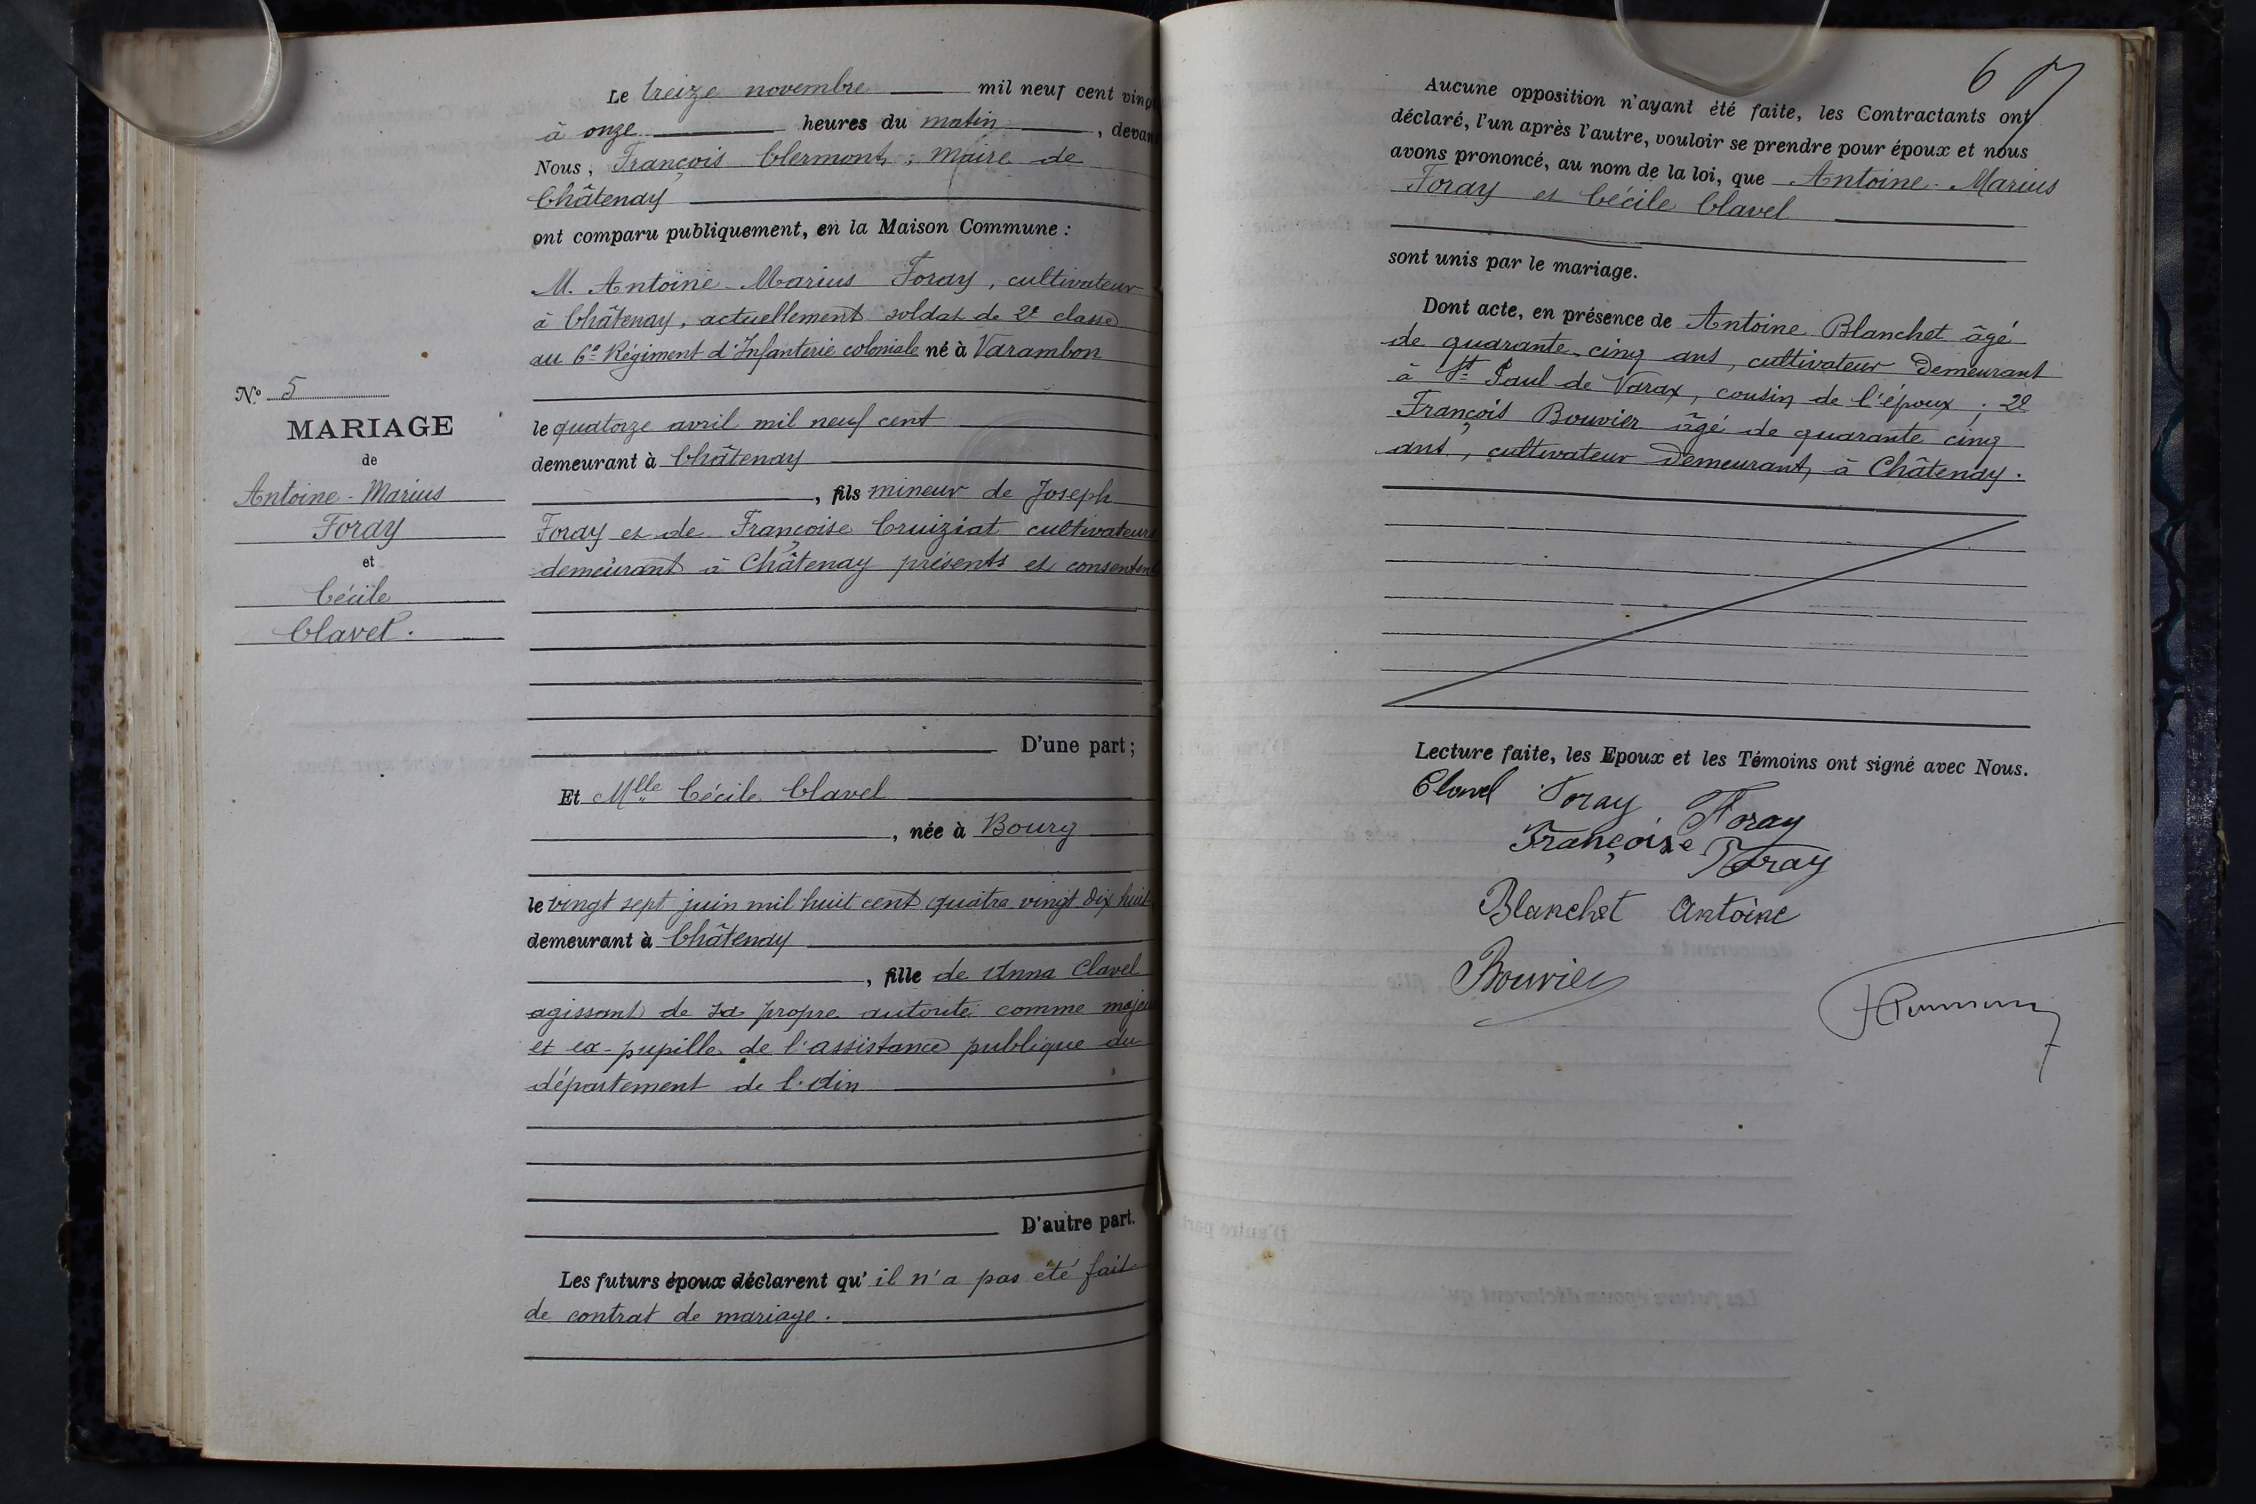 Le treize novembre mil neuf cent ving
à onze heures du matin, devan
Nous, François Clermont, Maire de
Châtenay
ont comparu publiquement, en la Maison Commune :
M. Antoine Marius Foray, cultivateur
à Châtenay, actuellement soldat de 2e classe
au 6e Régiment d'Infanterie coloniale né à Varambon
le quatorze avril mil neuf cent
demeurant à Châtenay
, fils mineur de Joseph
Foray et de Françoise Cruiziat cultivateurs
demeurant à Châtenay présents et consentent
D'une part ;
Et Mlle Cécile Clavel
, née à Bourg
le vingt sept juin mil huit cent quatre vingt dix huit
demeurant à Châtenay
, fille de Anna Clavel
agissant de sa propre autorité comme majeu
et ex-pupille de l'assistance publique du
département de l'Ain
D'autre part.
Les futurs époux déclarent qu'il n'a pas été fait
de contrat de mariage.
No 5
MARIAGE
de
Antoine-Marius
Foray
et
Cécile
Clavel.
67
Aucune opposition n'ayant été faite, les Contractants ont
déclaré, l'un après l'autre, vouloir se prendre pour époux et nous
avons prononcé, au nom de la loi, que Antoine-Marius
Foray et Cécile Clavel
sont unis par le mariage.
Dont acte, en présence de Antoine Blanchet âgé
de quarante-cinq ans, cultivateur demeurant
à St Paul de Varax, cousin de l'époux ; 2e
François Bouvier âgé de quarante cinq
ans, cultivateur demeurant à Châtenay.
Lecture faite, les Epoux et les Témoins ont signé avec Nous.
Clavel Foray Foray
Françoise Foray
Blanchet Antoine
Bouvier